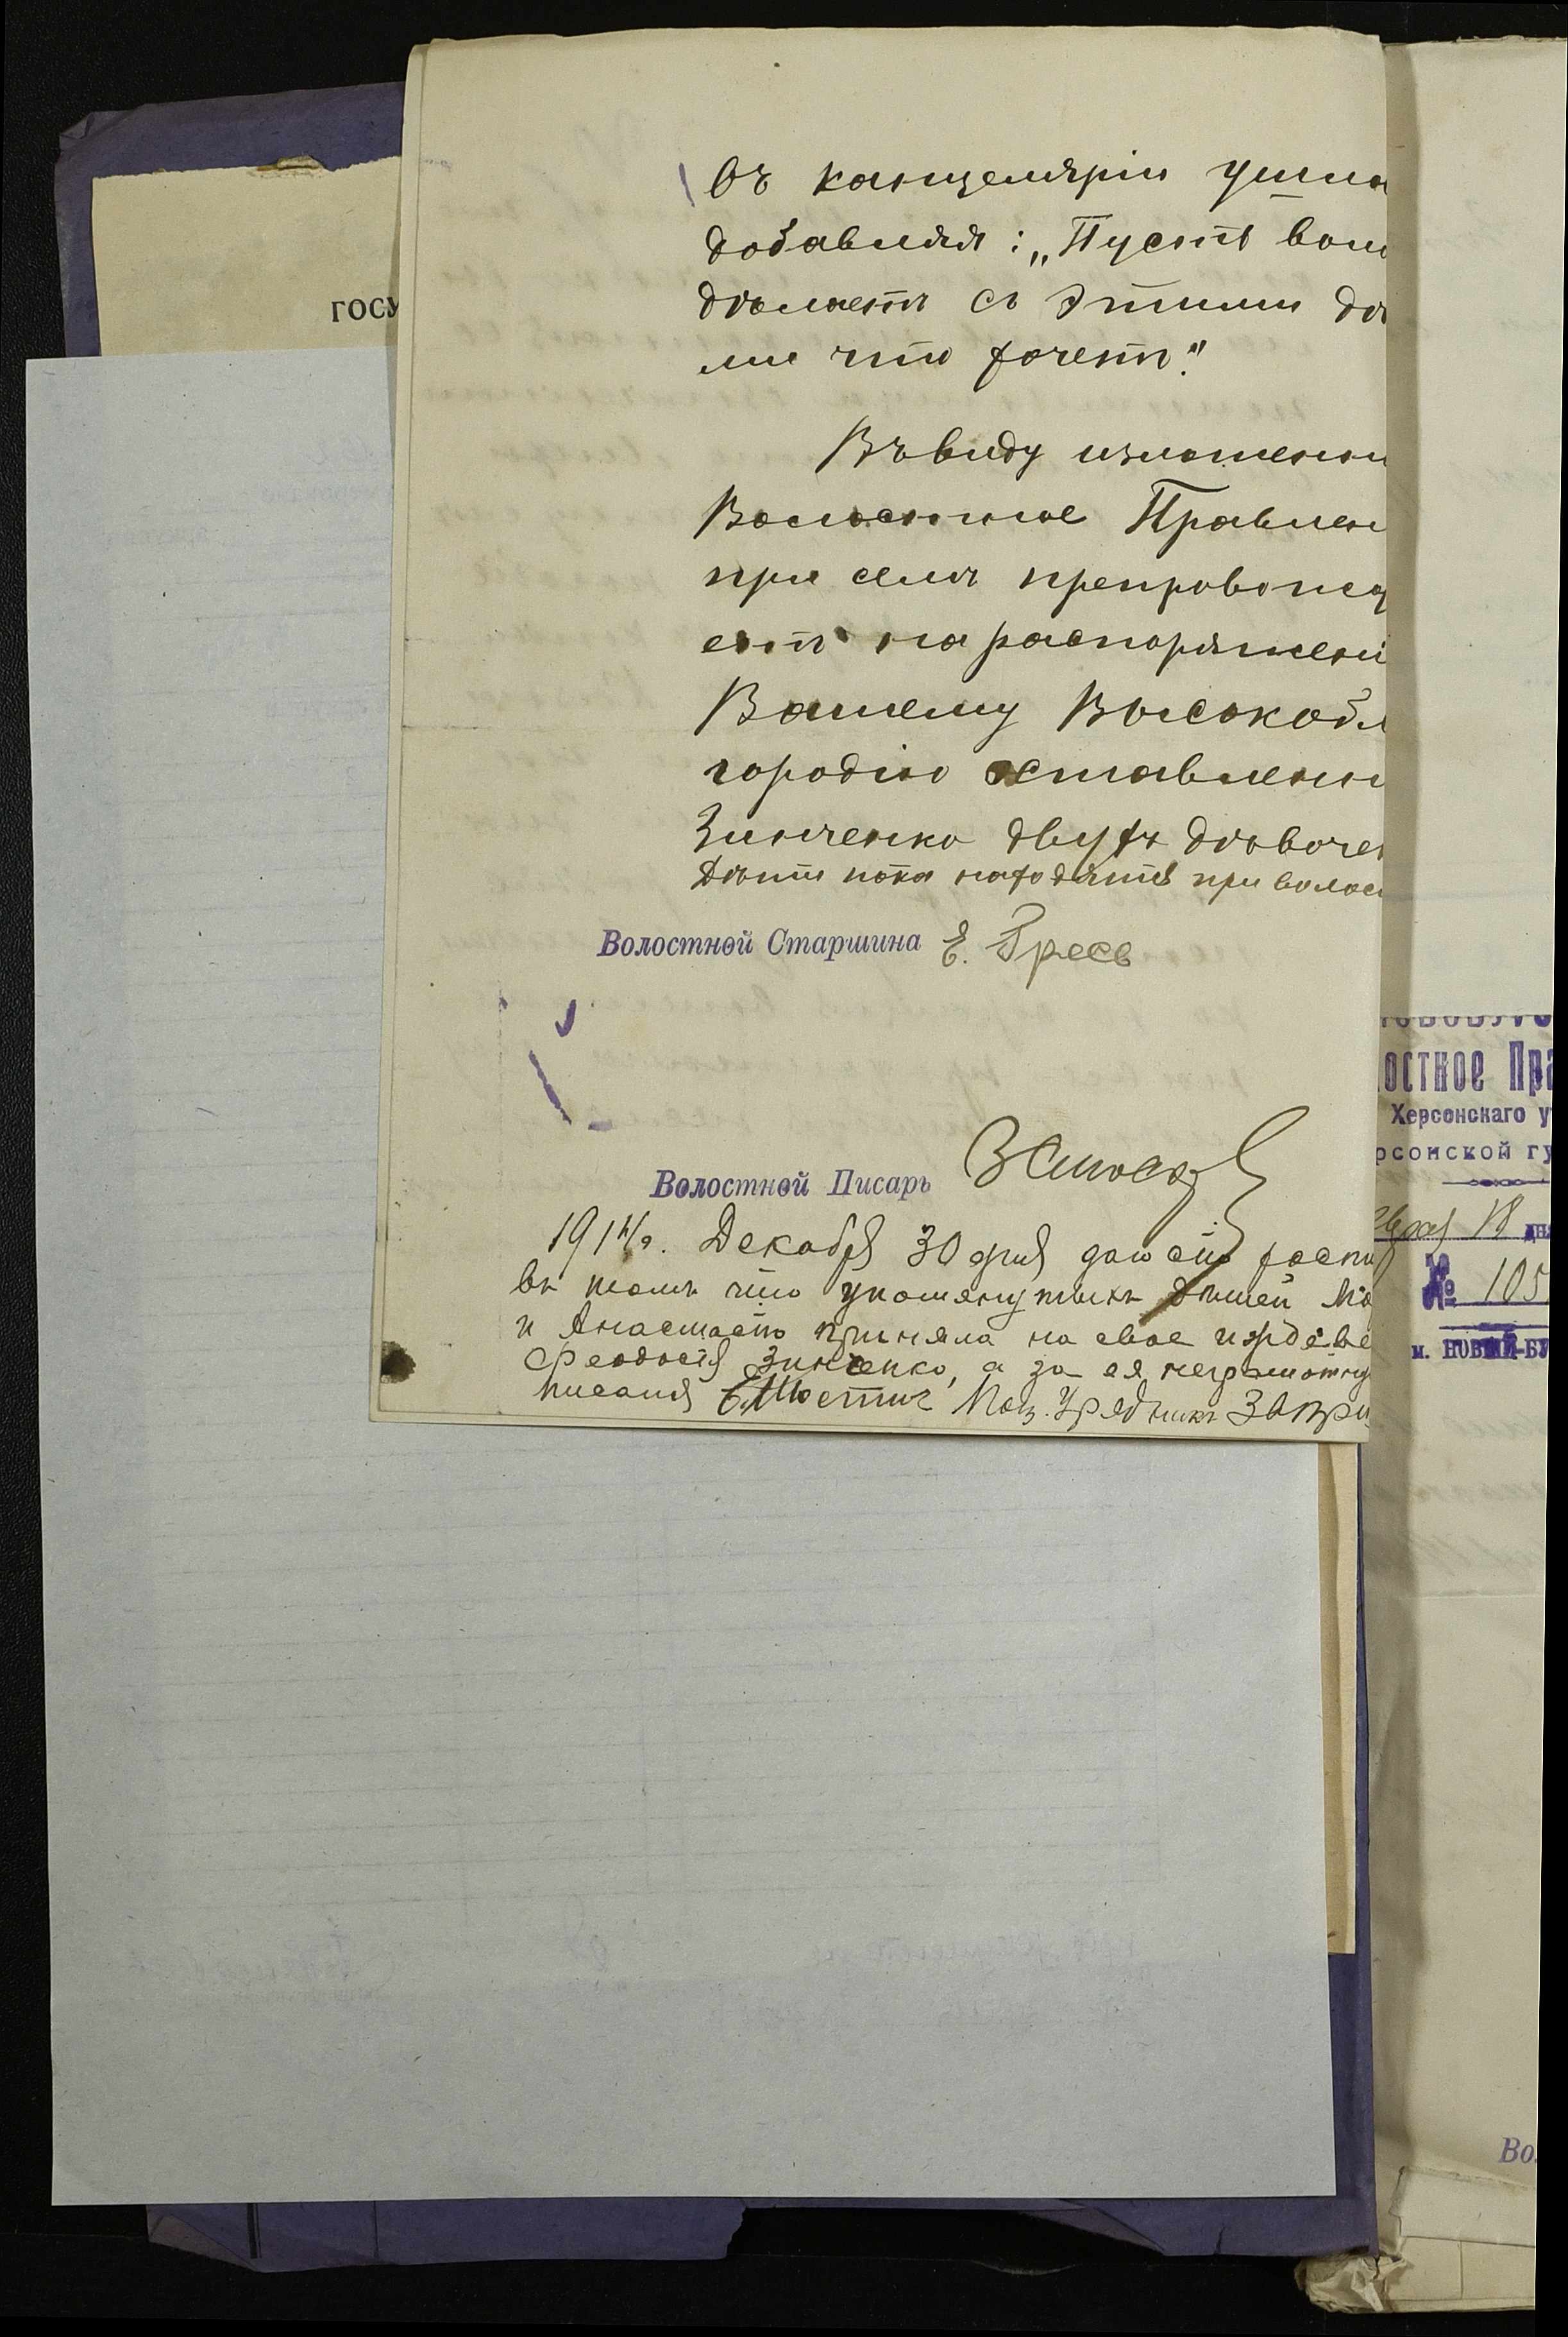 ГОСУ
въ канцеляріи ушла
добавляя: „Пусть воло
дѣлаетъ съ этими дѣ
ми что хочетъ."
Въ виду изложенн
Волостное Правлен
при семъ препровожд
етъ на распоряжені
Вашему Высокобл
городію оставленн
Зинченко двухъ дѣвочек
Дѣти пока находятся при волос
Волостной Старшина Е. Гресь
Волостной Писарь
191 г. Декабря 30 дня даю сію распи
въ томъ что упомянутыхъ дѣтей Ма
и Анастасію приняла на свое иждеве
Феодосія Зинченко, а за ея неграмотну
Пол. Урядникъ
остное Пра
Херсонскаго у
рсонской гу
18 дня
№ 105
м. НОВЫЙ-БУ
Во